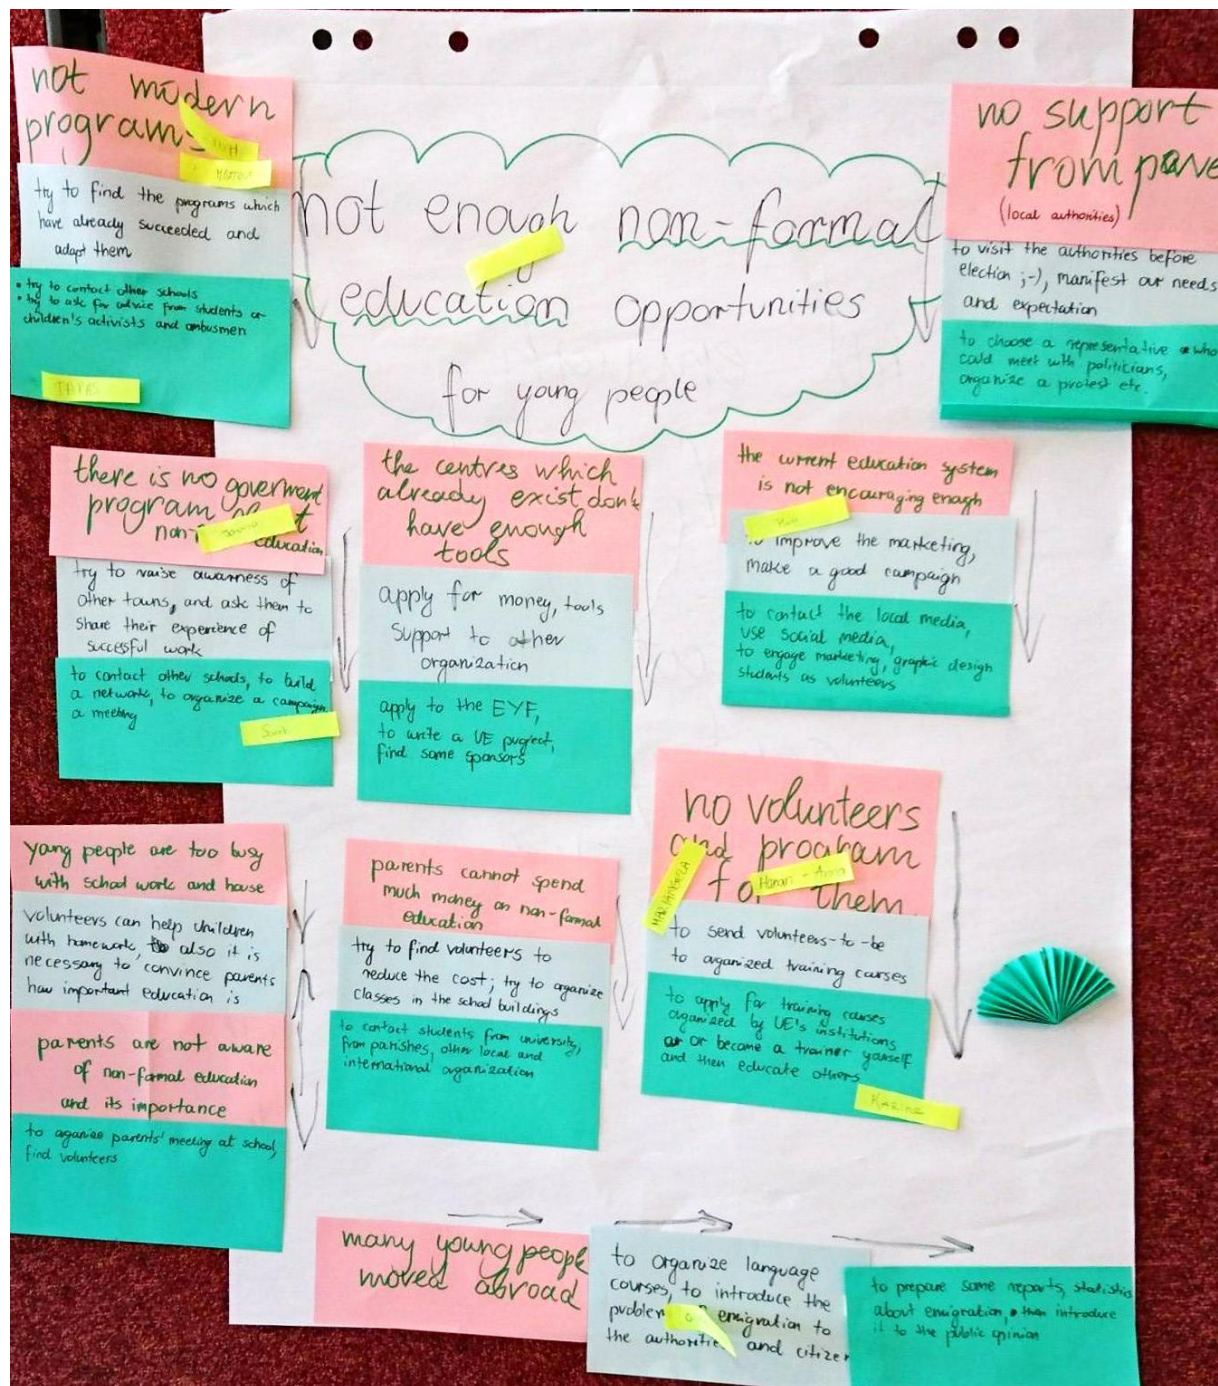 not modern
programs
try to find the programs which
have already succeeded and
adapt them
• try to contact other schools
• try to ask for advice from students or
children's activists and ombusmen
not enough non-formal
education opportunities
for young people
no support
from
(local authorities)
to visit the authorities before
election ;-), manifest our needs
and expectation
to choose a representative who
could meet with politicians,
organize a protest etc.
there is no goverment
program
education
try to raise awarness of
other towns, and ask them to
share their experience of
successful work
to contact other schools, to build
a network, to organize a campaign
a meeting
the centres which
already exist don't
have enough
tools
apply for money, tools
support to other
organization
apply to the EYF,
to write a UE project,
find some sponsors
the current education system
is not encouraging enough
to improve the marketing,
make a good campaign
to contact the local media,
use social media,
to engage marketing, graphic design
students as volunteers
young people are too busy
with school work and house
volunteers can help children
with homework, also it is
necessary to convince parents
how important education is
parents are not aware
of non-formal education
and its importance
to oganize parents' meeting at school,
find volunteers
parents cannot spend
much money on non-formal
education
try to find volunteers to
reduce the cost; try to organize
classes in the school buildings
to contact students from university,
from parishes, other local and
international organization
no volunteers
and program
for them
MARIANGELA
to send volunteers-to-be
to organized training courses
to apply for training courses
organized by UE's institutions
or become a trainer yourself
and then educate others
KARINE
many young people
moved abroad
to organize language
courses, to introduce the
problem emigration to
the authorities and citizen
to prepare some reports, statistics
about emigration, then introduce
it to the public opinion